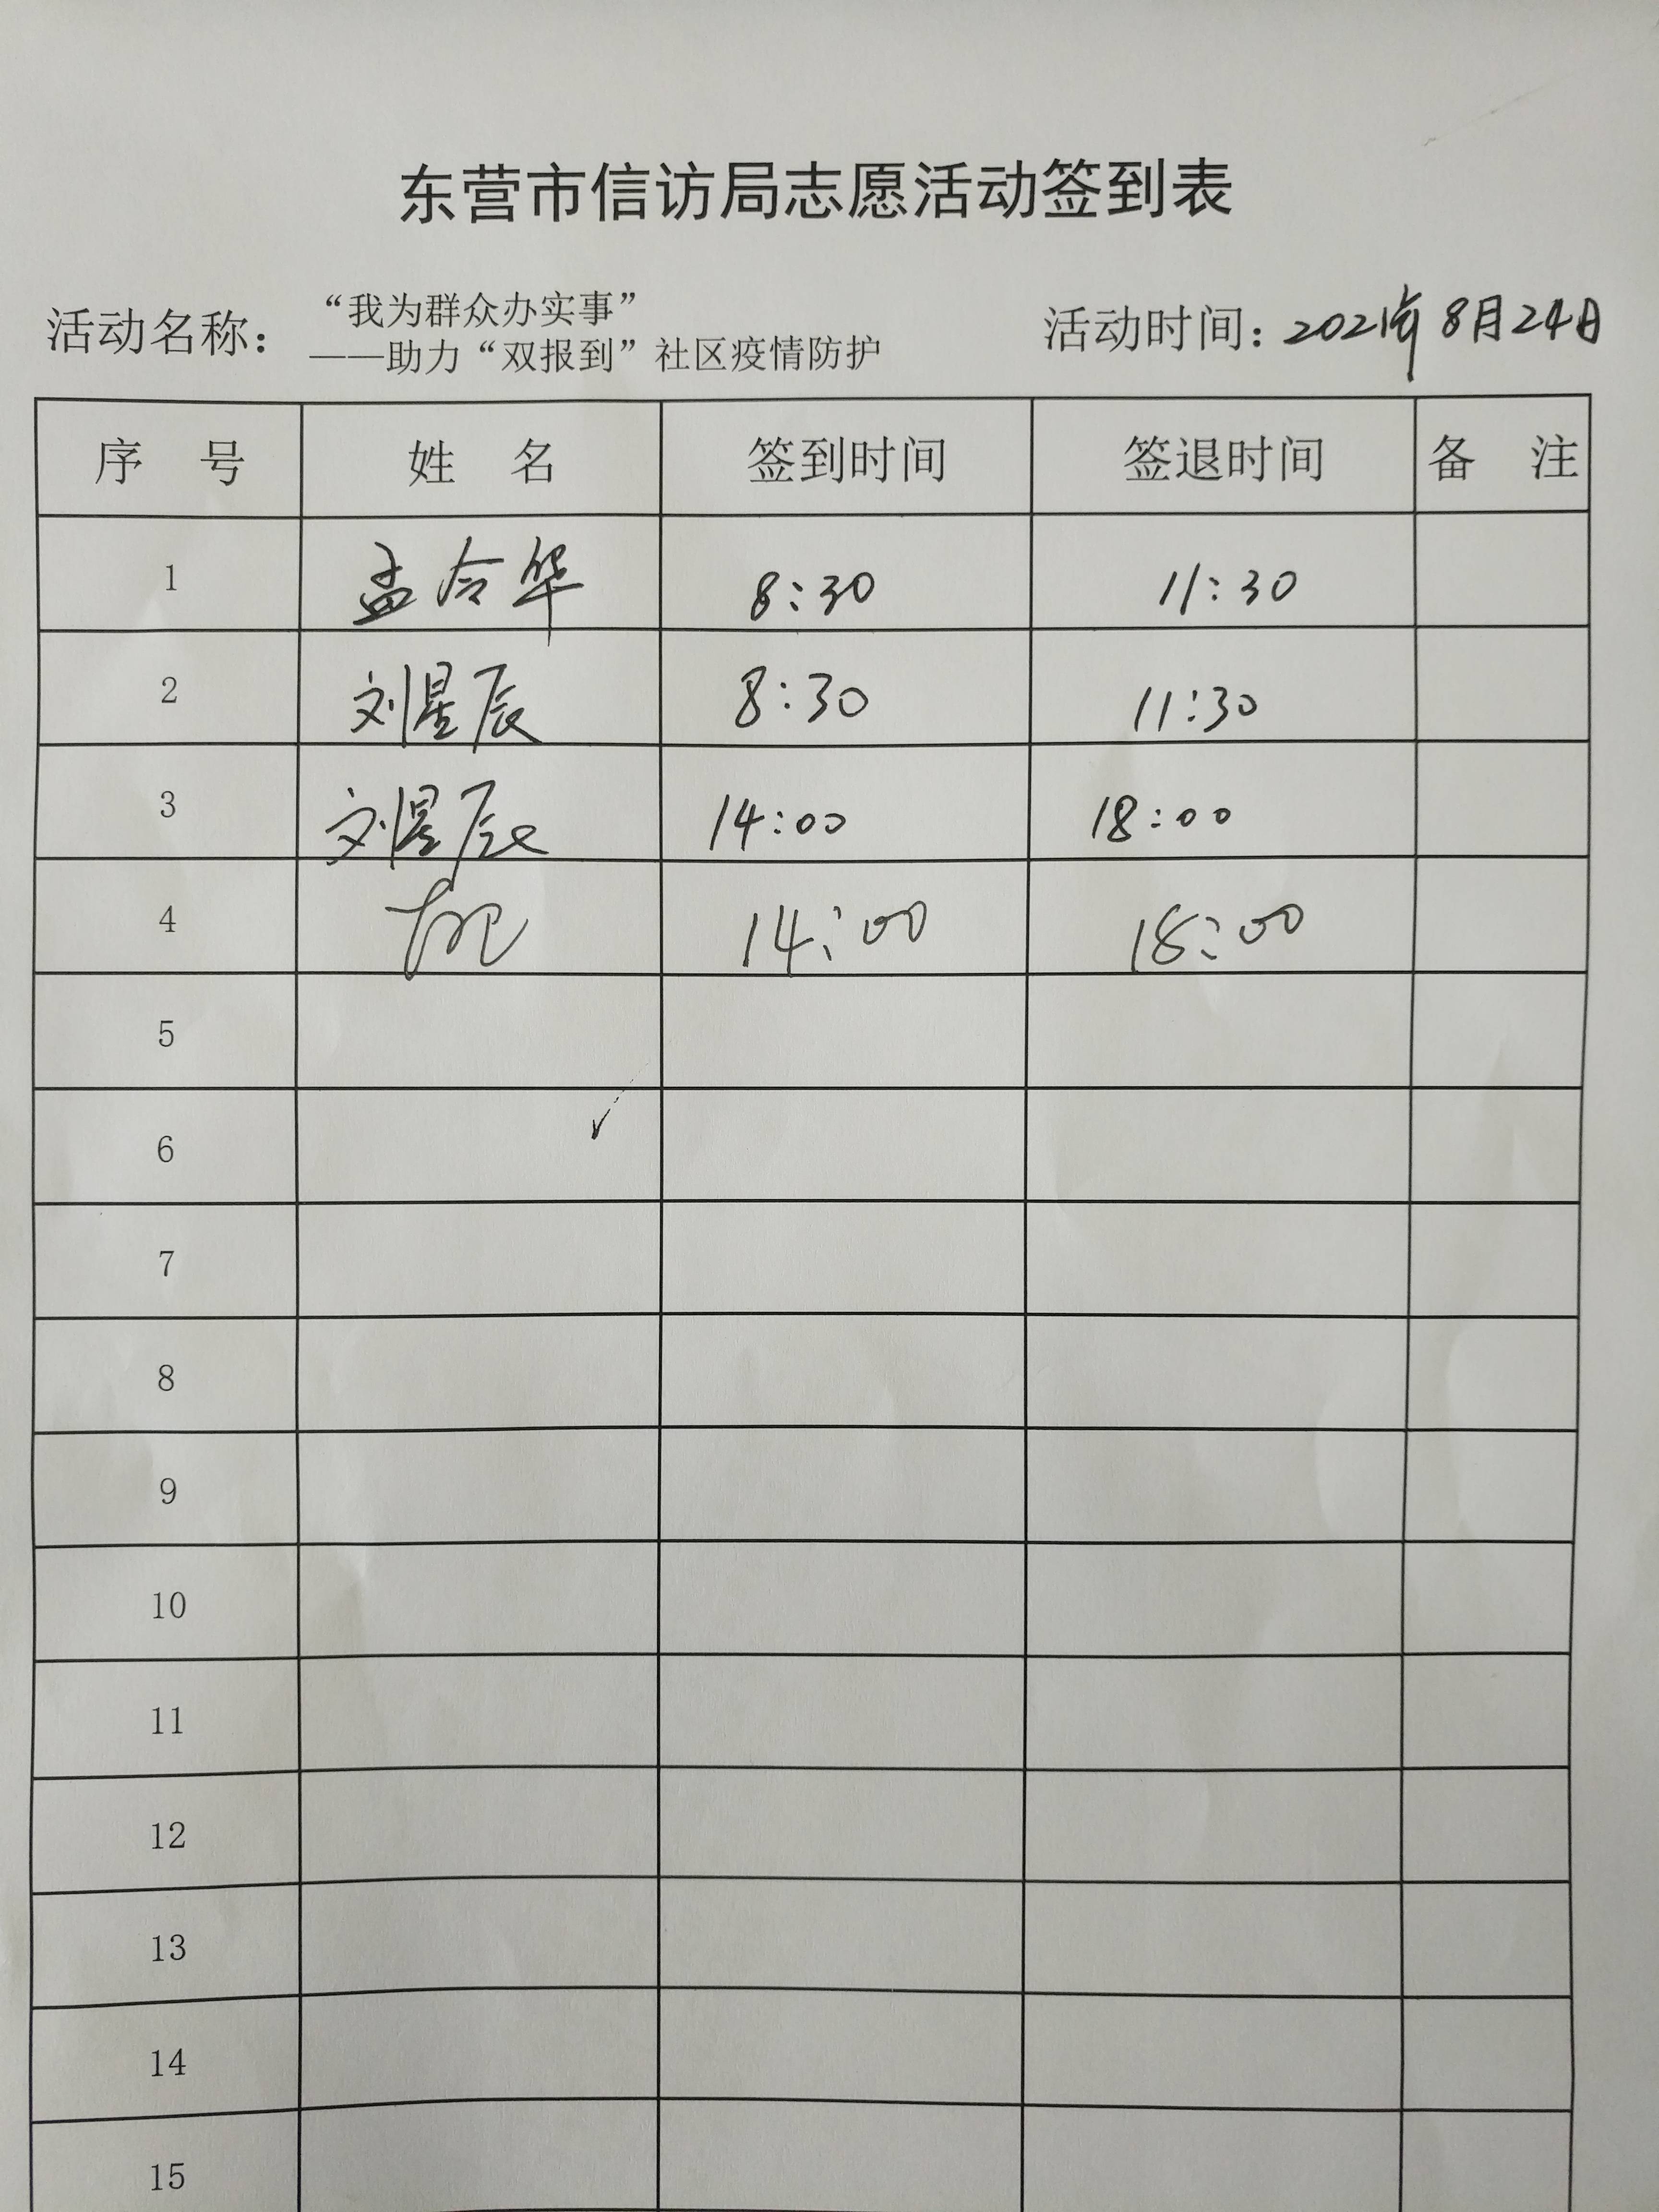 东营市信访局志愿活动签到表
活动名称：“我为群众办实事”
——助力“双报到”社区疫情防护
活动时间：2021年8月24日
序 号 姓 名 签到时间 签退时间 备 注
1 孟令华 8:30 11:30
2 刘星辰 8:30 11:30
3 刘星辰 14:00 18:00
4 14:00 18:00
5
6
7
8
9
10
11
12
13
14
15